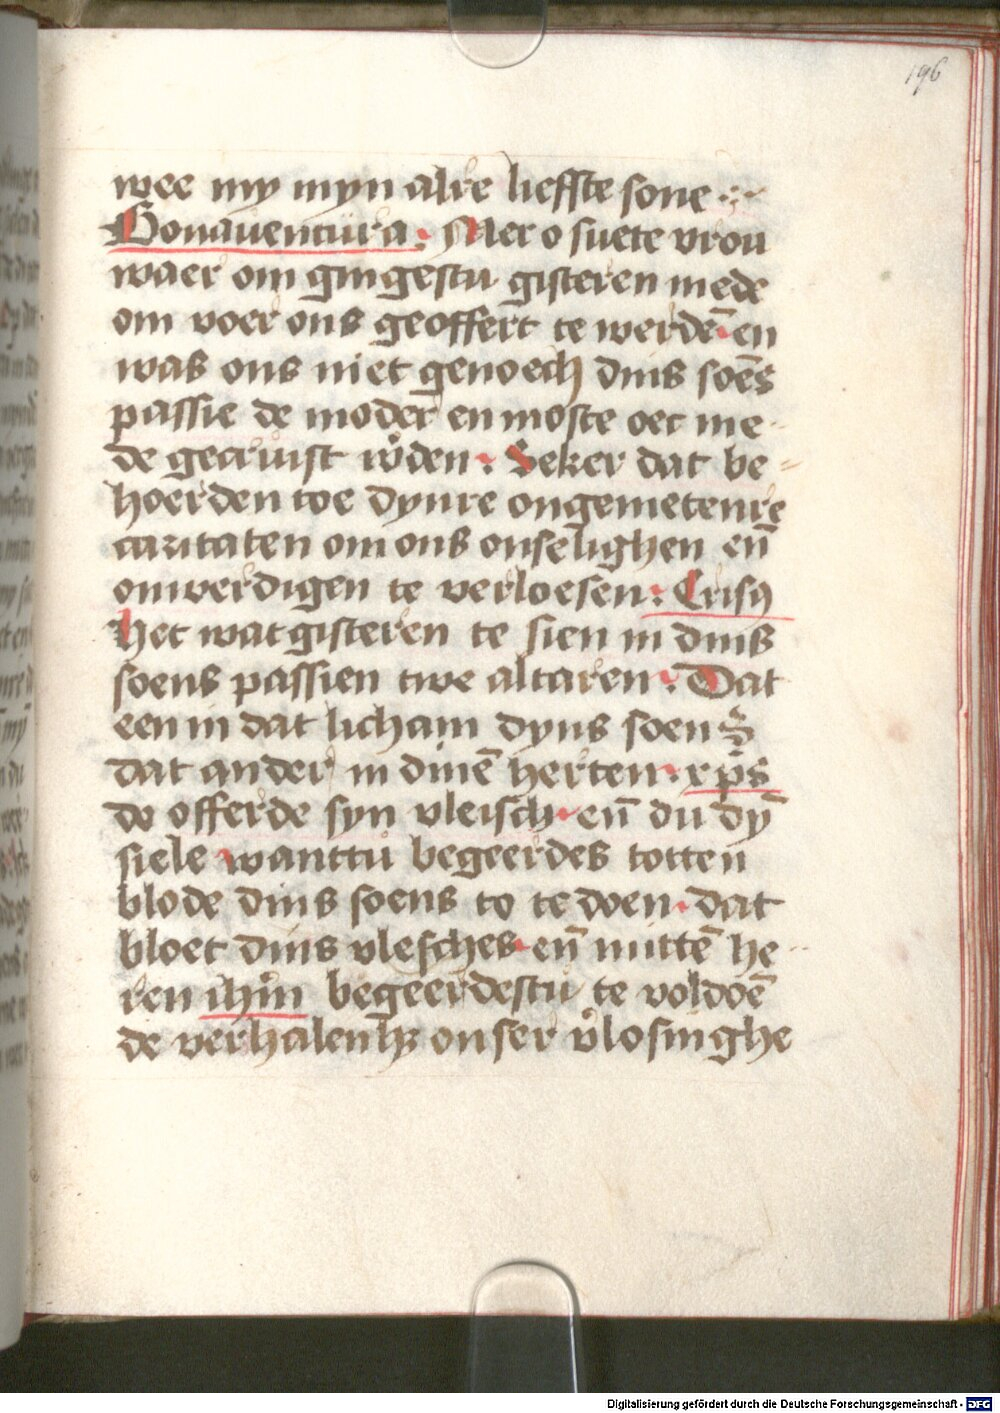 196
wee my myn alre lieffte sone
Bonauentura. Mer o suete vrou
waer om gingestu gisteren mede
om voer ons geoffert te werdē en
was ons niet genoech dins soēs
passie de moder en moste oec me
de gecruist w̄den. Seker dat be
hoerden toe dynre ongemetenre
caritaten om ons onselighen en̄
onwerdigen te verloesen: Crisꝯ
Het wat gisteren te sien in dins
soens passien twe altaren. Dat
een in dat licham dyns soen
dat ander in dinē herten. xp̄s
de offerde syn vleisch. en̄ du dȳ
siele wanttu begeerdes totten
blode dins soens to te doen. dat
bloet dins vlesches. en̄ mittē he
ren ihm begeerdestu te voldoē
de verhalenh onser v̄losinghe
Digitalisierung gefördert durch die Deutsche Forschungsgemeinschaft - DFG